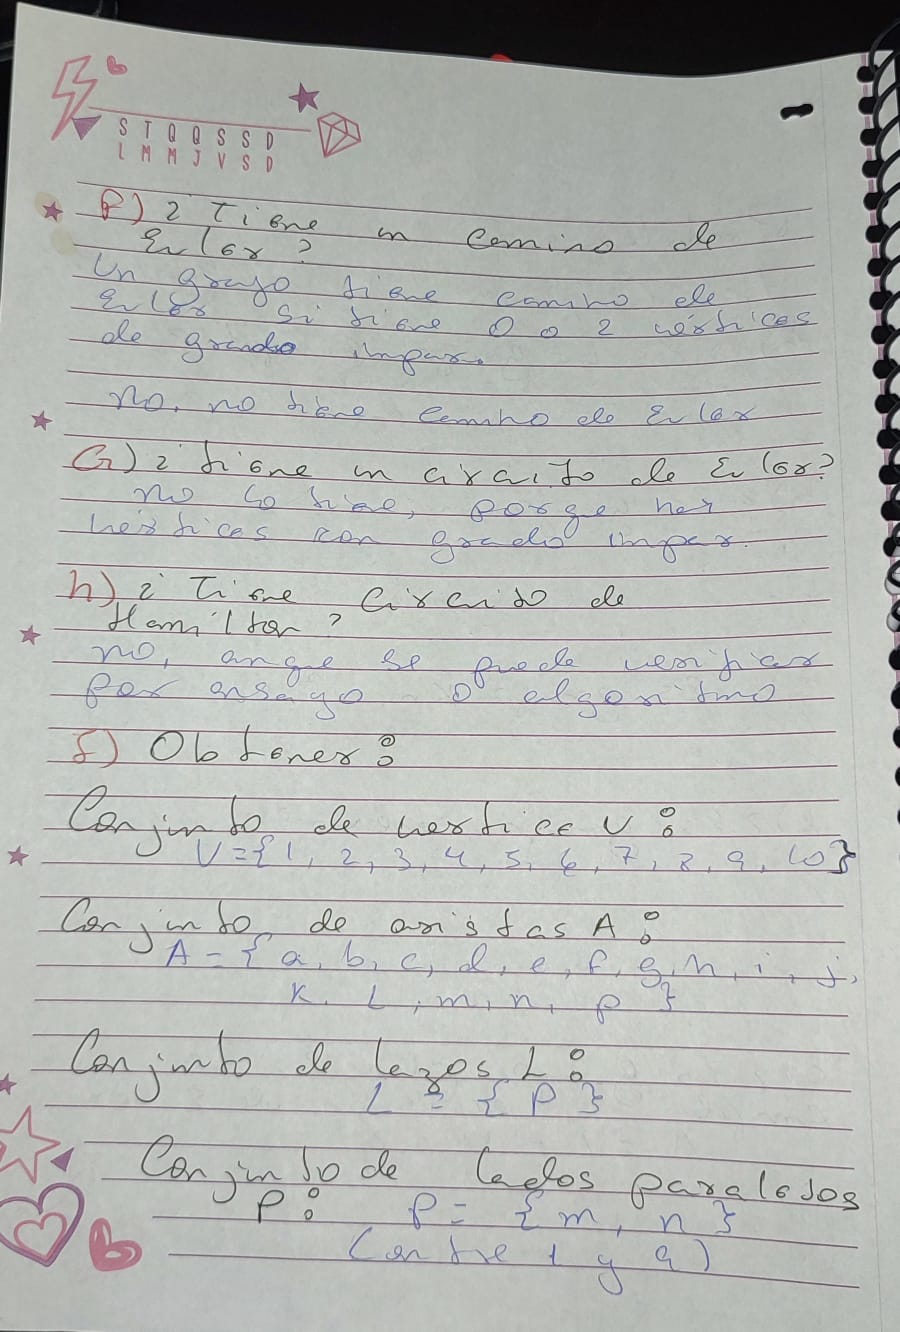 S T Q Q S S D
L M M J V S D
f) ¿Tiene un camino de
Euler?
Un grafo tiene camino de
Euler si tiene 0 o 2 vértices
de grado impar.
No, no tiene camino de Euler
G) ¿tiene un circuito de Euler?
no lo tiene, porque hay
vértices con grado impar.
h) ¿Tiene Circuito de
Hamilton?
no, aunque se puede verificar
por ensayo o algoritmo
f) Obtener:
Conjunto de vertice V:
V={1, 2, 3, 4, 5, 6, 7, 8, 9, 10}
Conjunto de aristas A:
A={a, b, c, d, e, f, g, h, i, j,
k, l, m, n, p}
Conjunto de lazos L:
L = {P}
Conjunto de lados paralelos
P: P= {m, n}
(entre 1 y 9)